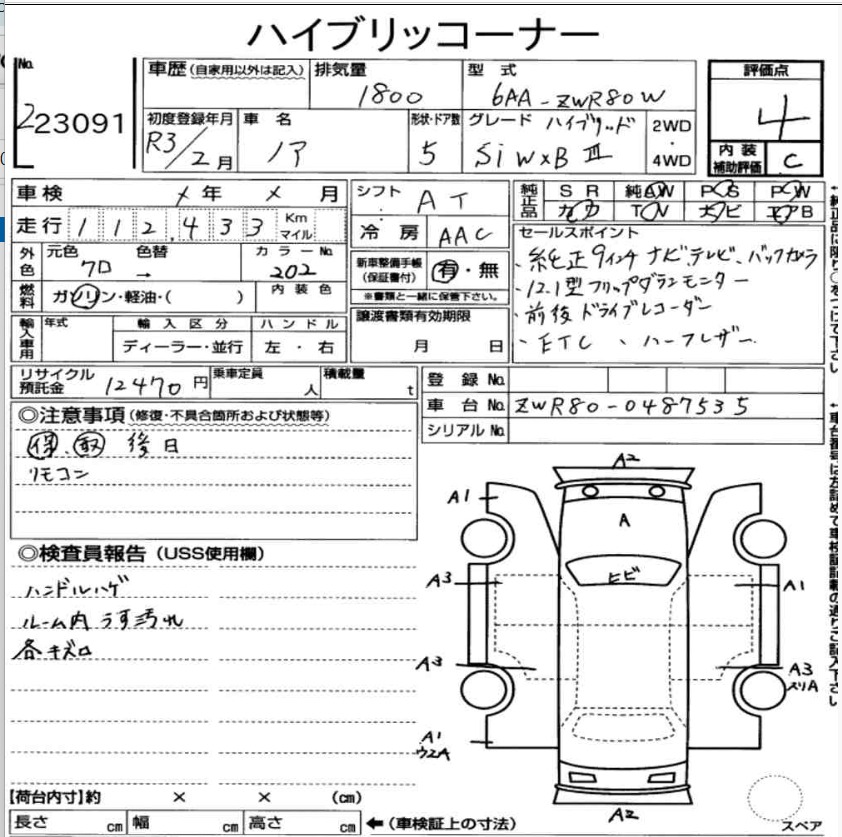 ハイブリッコーナー
No.
223091
車歴(自家用以外は記入)
排気量
1800
型式
6AA-ZWR80W
評価点
4
初度登録年月
R3/2月
車名
ノア
形状・ドア数
5
グレード ハイブリッド
Si W×B Ⅲ
2WD
・
4WD
内装
補助評価
C
車検 × 年 × 月
走行 112,433 Km マイル
外色
元色 クロ
色替 →
カラーNo.
202
燃料
ガソリン・軽油・( )
内装色
輸入車用
年式
輸入区分
ディーラー・並行
ハンドル
左・右
シフト AT
冷房 AAC
新車整備手帳
(保証書付)
有・無
※書類と一緒に保管下さい。
譲渡書類有効期限
月 日
純正品
SR 純AW PS PW
カワ TV ナビ エアB
セールスポイント
・純正9インチナビテレビ、バックカメラ
・12.1型フリップダウンモニター
・前後ドライブレコーダー
・ETC 、ハーフレザー
リサイクル
預託金
12470円
乗車定員
人
積載量
t
登録No.
車台No. ZWR80-0487535
シリアルNo.
◎注意事項(修復・不具合箇所および状態等)
保、取 後日
リモコン
◎検査員報告(USS使用欄)
ハンドルハゲ
ルーム内うす汚れ
各キズ凹
A2
A1
A
ヒビ
A3
A1
A3
A3
スリA
A1
ウエA
A2
スペア
【荷台内寸】約 × × (cm)
長さ cm 幅 cm 高さ cm ←(車検証上の寸法)
↑純正品に限り○をつけて下さい
↑車台番号は左詰めで車検証記載の通りご記入下さい